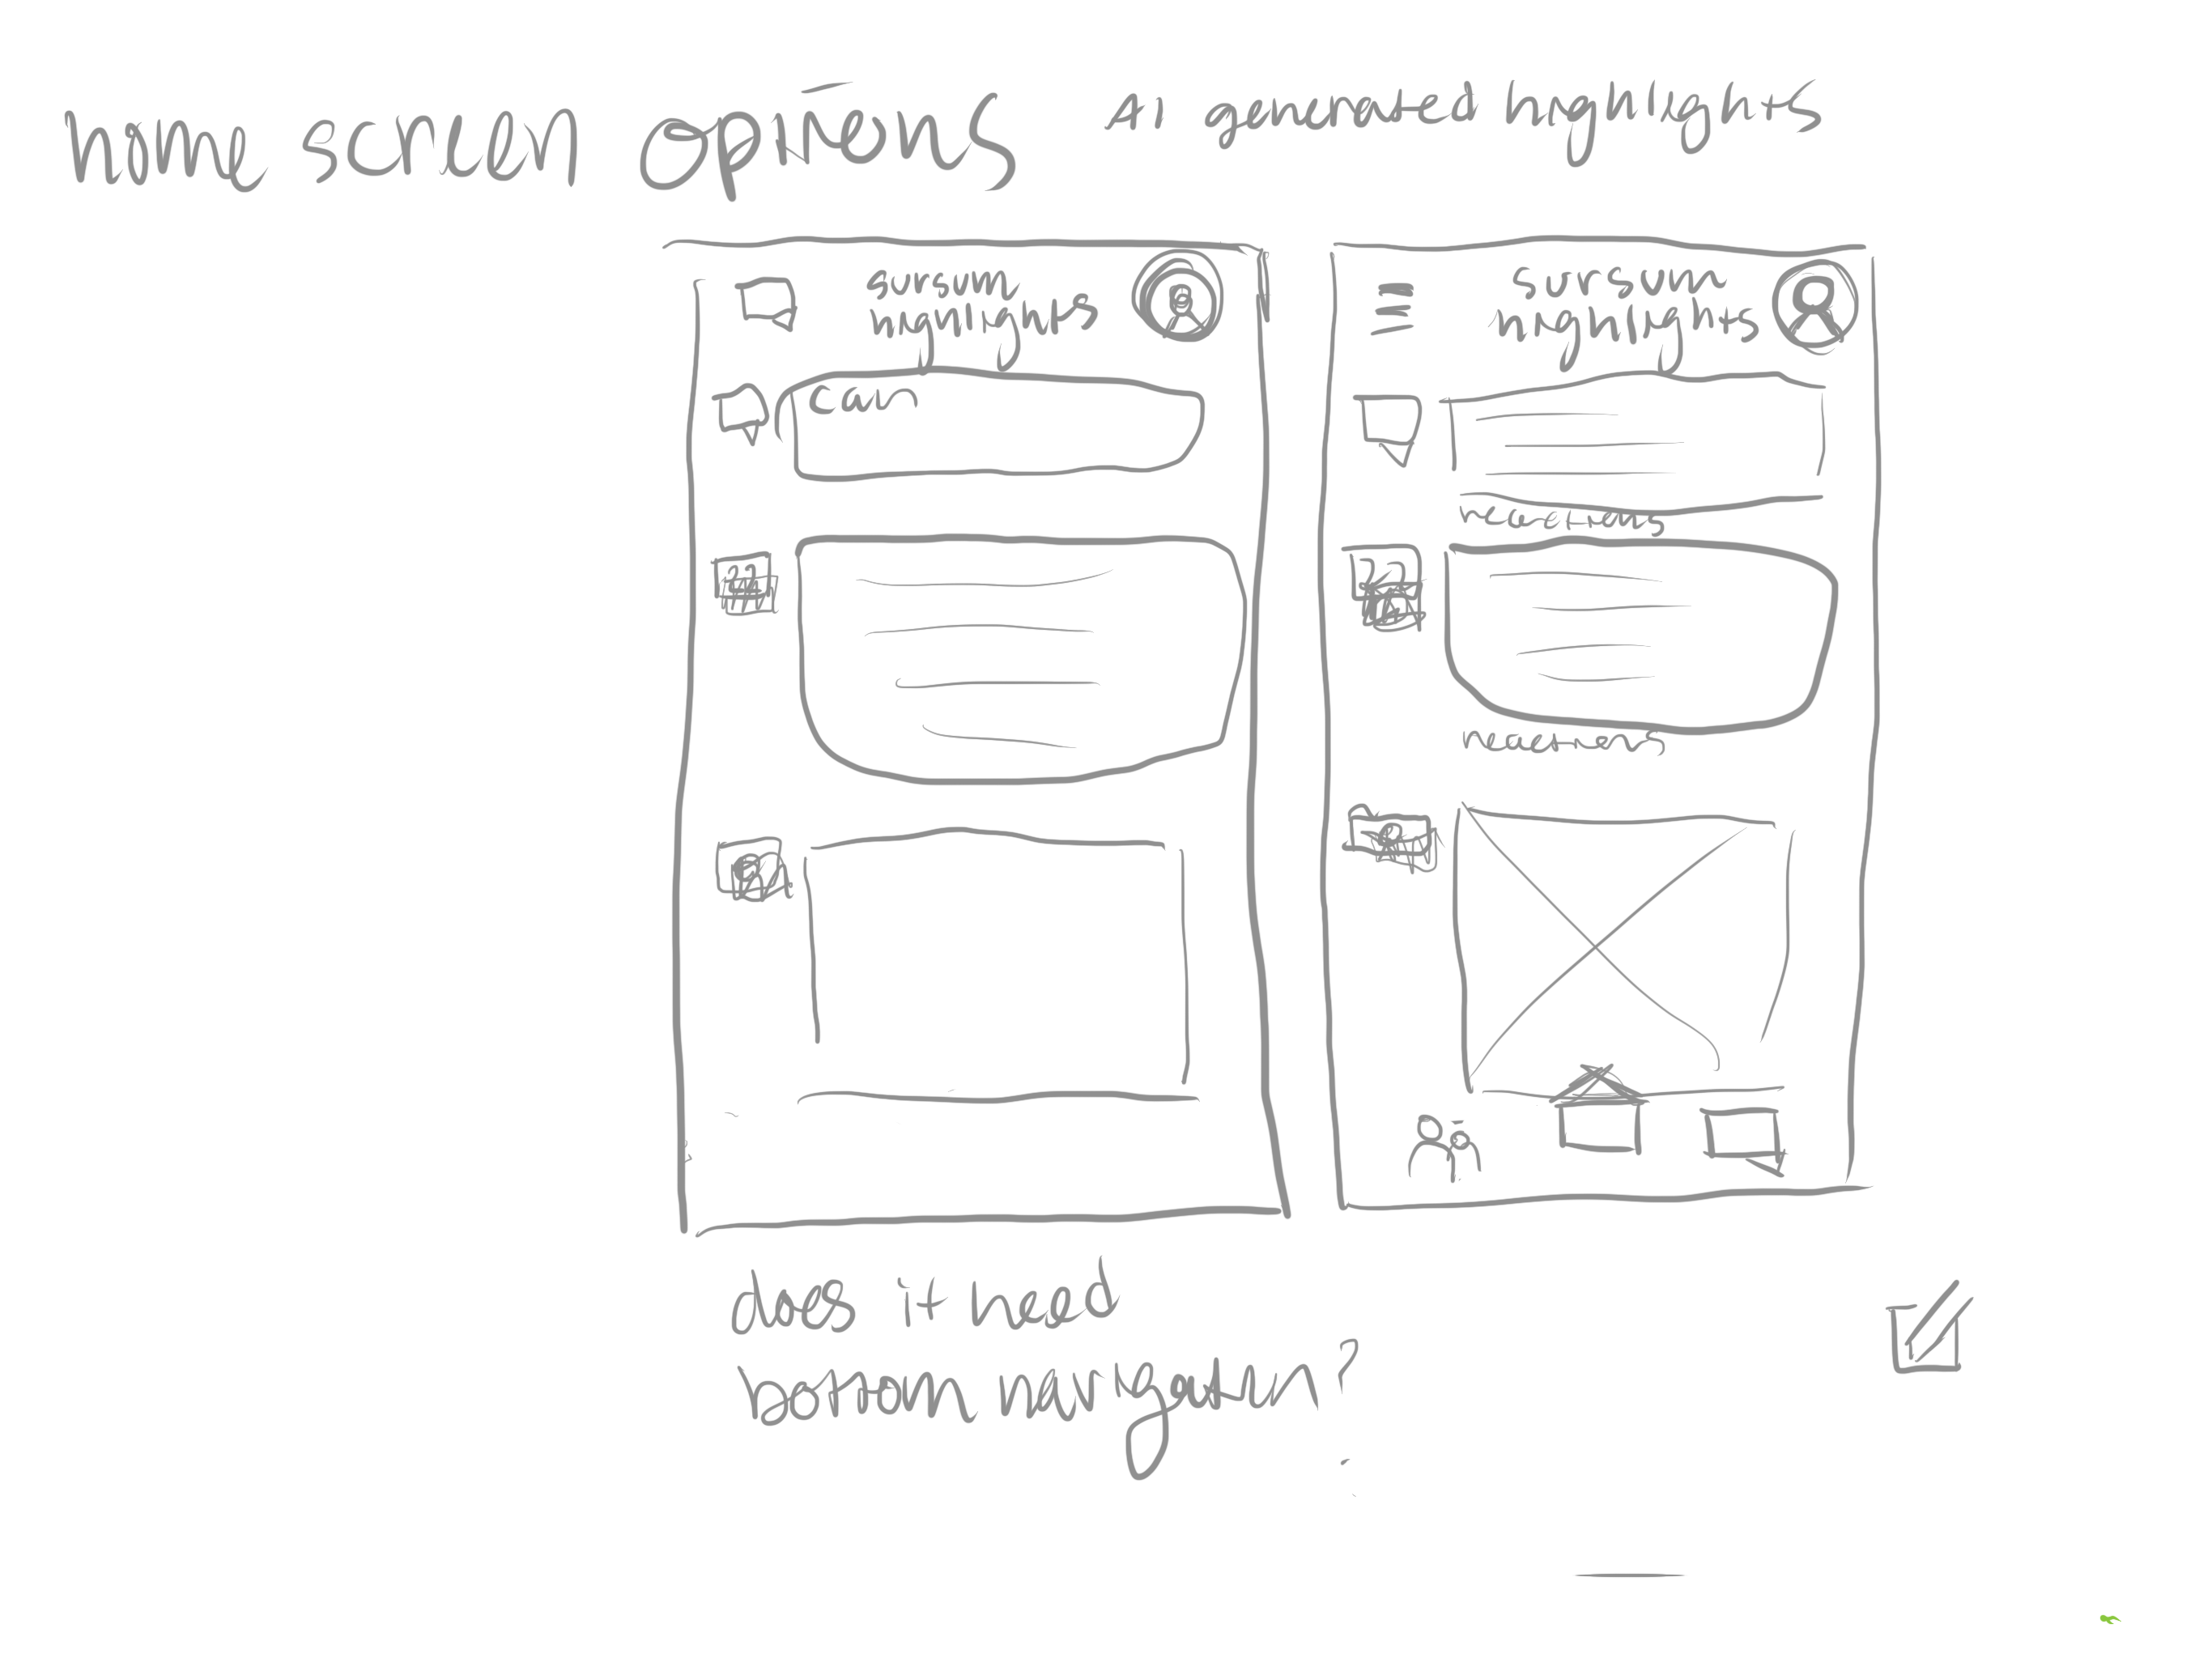 home screen options
AI generated highlights
sursum
highlights
can
sursum
highlights
reactions
reactions
does it need
bottom navigation?